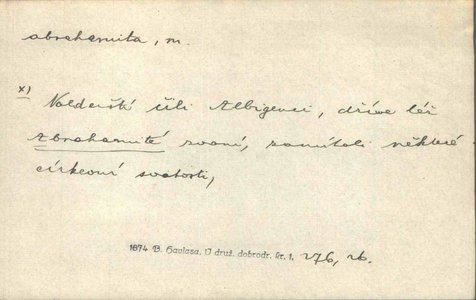 abrahamita, m.
x) Valdenští čili Albigenci, dříve též
Abrahamité zvaní, zamítali některé
církevní svátosti,
1874 B. Havlasa. V druž. dobrodr. kr. 1. 276, 26.